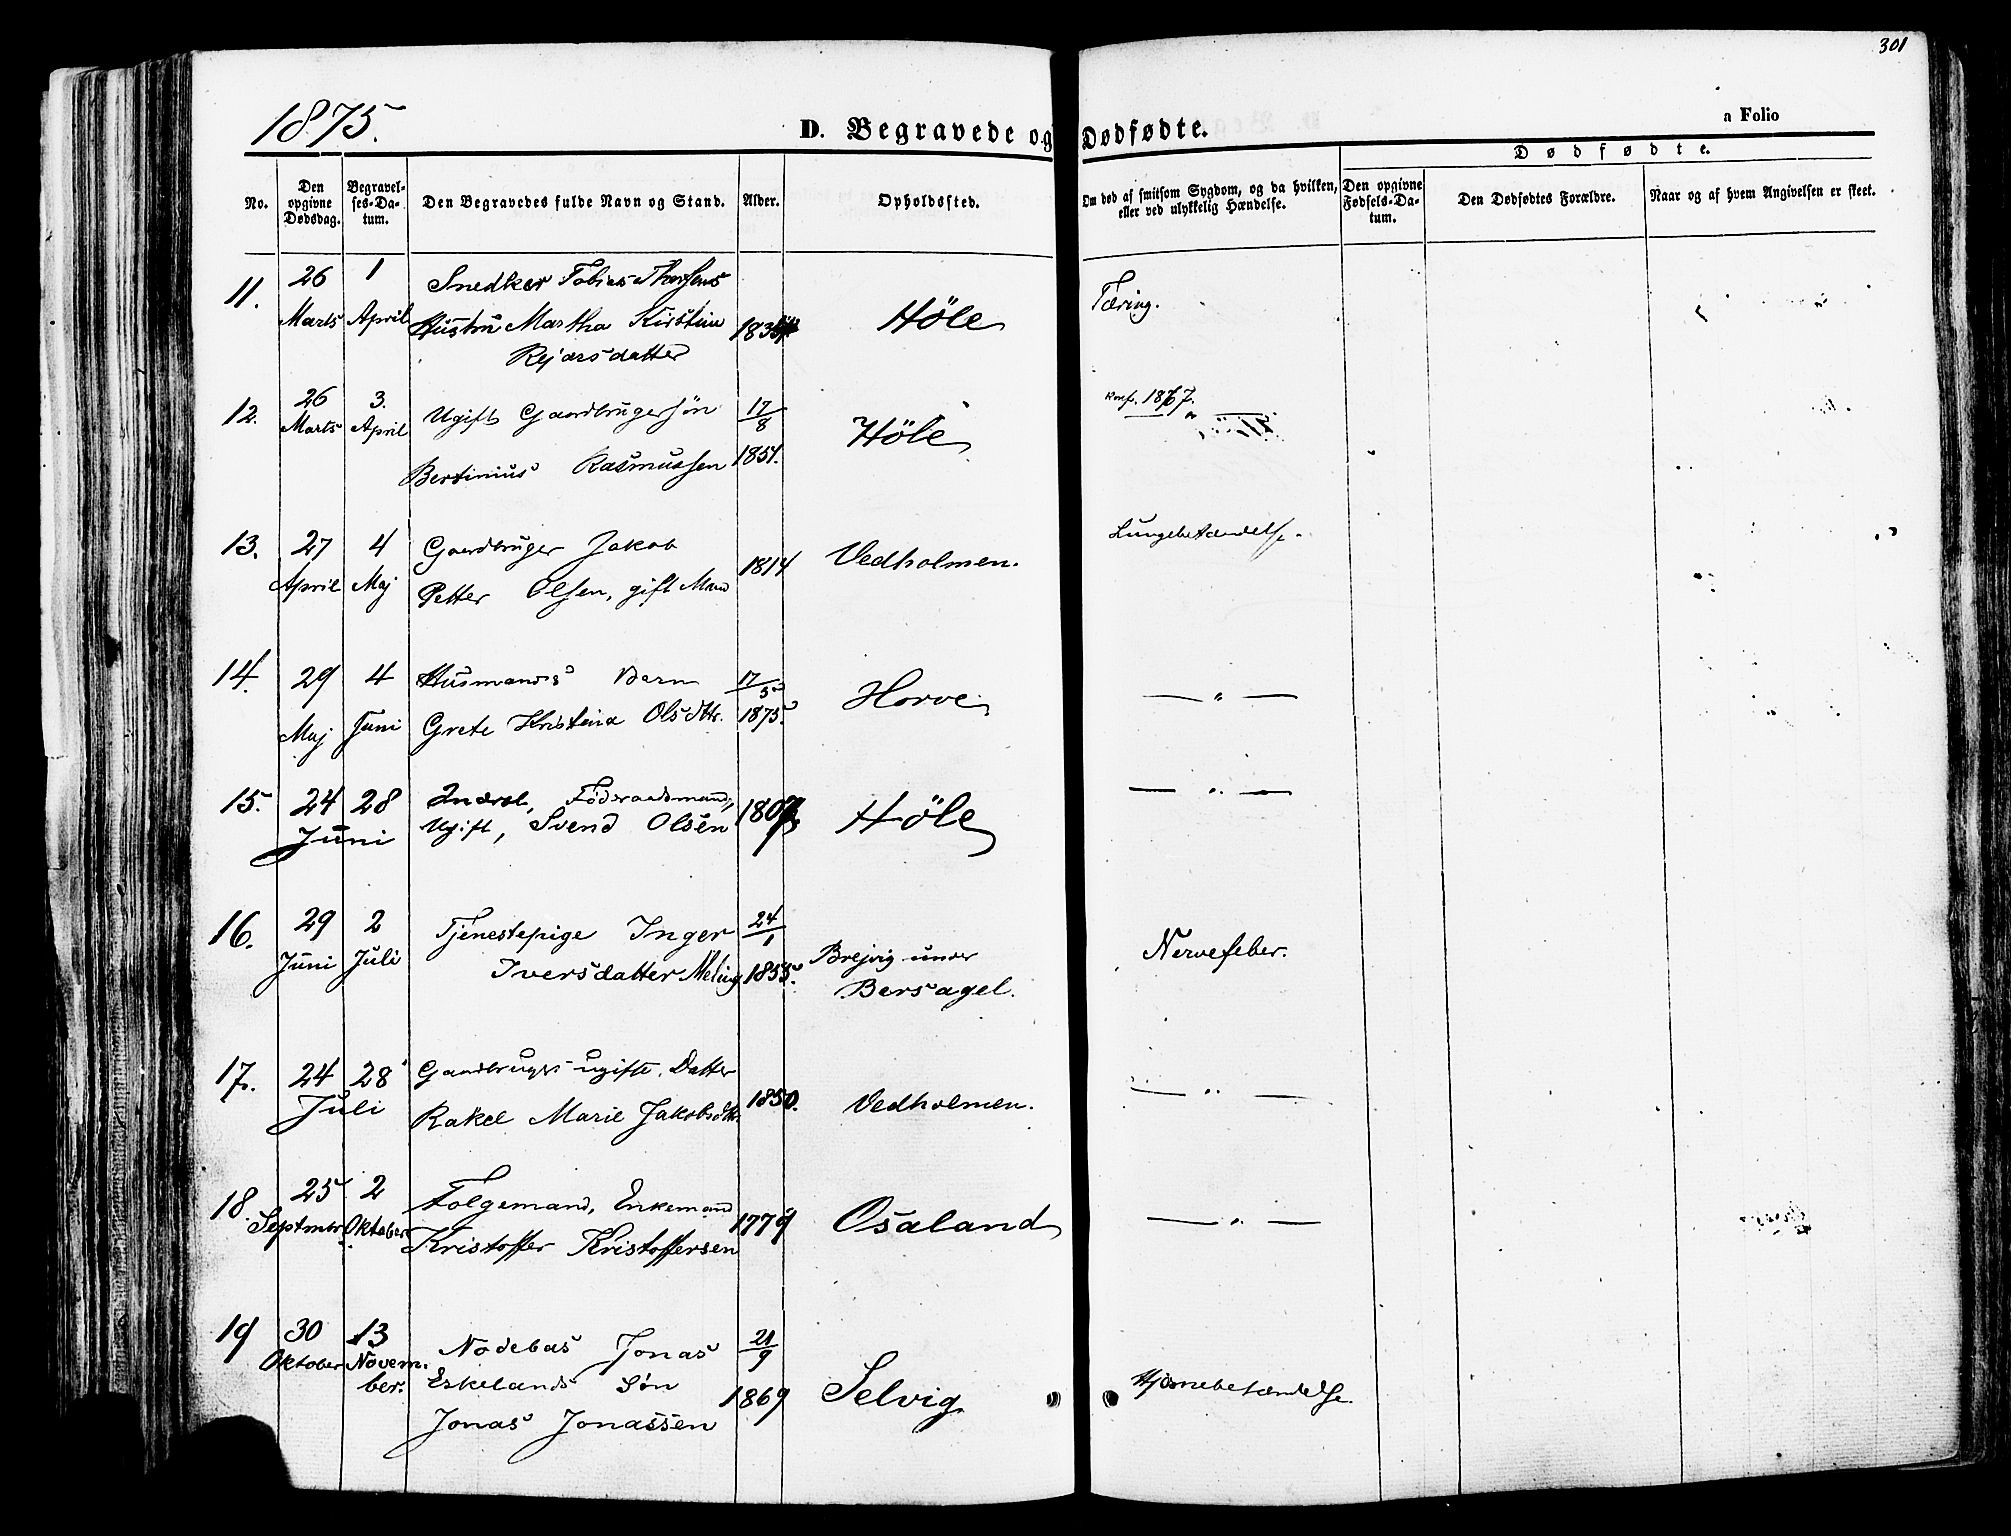 301
1875.
D. Begravede og Dødfødte.
a Folio
No.
Den opgivne Dødsdag.
Begravelses-Datum.
Den Begravedes fulde Navn og Stand.
Alder.
Opholdssted.
Om død af smitsom Sygdom, og da hvilken, eller ved ulykkelig Hændelse.
Dødfødte.
Den opgivne Fødsels-Datum.
Den Dødfødtes Forældre.
Naar og af hvem Angivelsen er skeet.
11. 26 1 Snedker Tobias Thorsens
Marts April Hustru Martha Kirstine Höle Tæring.
Rejarsdatter
12. 26 3. Ugift Gaardbrugersøn 17/8 Konf. 1867.
Marts April Bertinius Rasmussen 1851. Höle
13. 27 4 Gaardbruger Jakob 1814 Vedholmen. Lungebetændelse.
April Maj Petter Olsen, gift Mand
14. 29 4 Husmands Barn 17/5 Horve — " —
Maj Juni Grete Kristina Olsdttr. 1875.
15. 24 28 Inderst, Föderaadsmand, Höle — " —
Juni Ugift, Svend Olsen
16. 29 2 Tjenestepige Inger 24/1 Brejvig under Nervefeber.
Juni Juli Iversdatter Meling 1855. Bersagel.
17. 24 28 Gaardbrugers ugifte Datter 1850. Vedholmen. — " —
Juli Rakel Marie Jakobsdttr.
18 25 2 Folgemand, Enkemand 1779 Osaland — " —
Septmbr Oktober Kristoffer Kristoffersen
19 30 13 Nodebas Jonas 21/9
Oktober November. Eskelands Søn 1869 Selvig Hjernebetændelse.
Jonas Jonassen